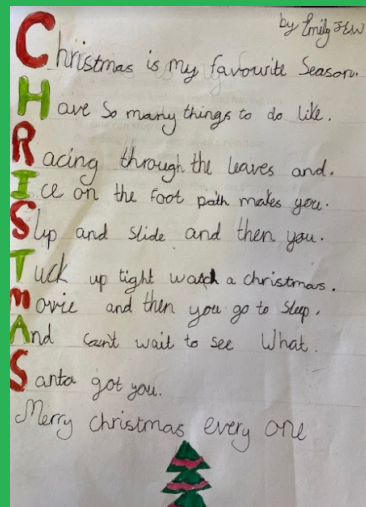 by Emily JEW
Christmas is my favourite Season.
Have So many things to do like.
Racing through the leaves and.
Ice on the foot path makes you.
Slip and slide and then you.
Tuck up tight watch a christmas.
Movie and then you go to sleep.
And can't wait to see What.
Santa got you.
Merry christmas every one